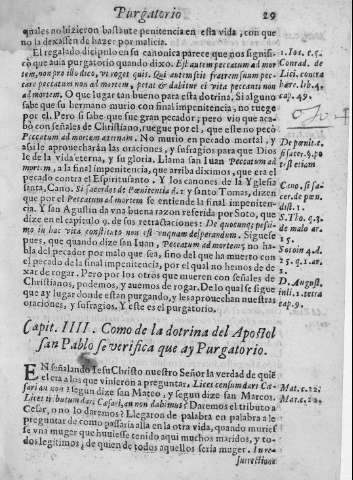 Purgatorio 29
quales no hizieron bastante penitencia en esta vida, con que
no la dexassen de hazer por malicia.
El regalado dicipulo en su canonica parece que nos signifi-
cò que auia purgatorio quando dixo. Est autem peccatum ad mor
tem, non pro illo dico, vt roget quis. Qui autem scit fratrem suum pec-
care peccatum non ad mortem, petat & dabitur ei vita peccanti non
ad mortem. O que lugar tan bueno para esta dotrina, Si alguno
sabe que su hermano murio con final impenitencia, no ruegue
por el. Pero si sabe que fue gran pecador; pero vio que aca-
bò con señales de Christiano, ruegue por el, que este no pecò
Peccatum ad mortem. No murio en pecado mortal, y
assi le aprouecharàn las oraciones, y sufragios para que Dios
le de la vida eterna, y su gloria. Llama san Iuan Peccatum ad
mortem, a la final impenitencia, que arriba diximos, que era el
pecado contra el Espiritusanto. Y los canones de la Yglesia
Cano. Si sacerdos de Pœnitentia d. 1: y santo Tomas, dizen
que por el Peccatum ad mortem se entiende la final impeniten-
cia. Y san Agustin da vna buena razon referida por Soto, que
dize en el capitulo 9. de sus retractaciones: De quocunq; pessi-
mo in hac vita constituto non est vtiquam desperandum. Siguese
pues, que quando dize san Iuan, Peccatum ad mortem, no ha-
bla del pecador por malo que sea, sino del que ha muerto con
el pecado de la final impenitencia, por el qual no hemos de de-
xar de rogar. Pero por los otros que mueren con señales de
Christianos, podemos, y auemos de rogar. De lo qual se sigue
que ay lugar donde estan purgando, y les aprouechan nuestras
oraciones, y sufragios. Y este es el purgatorio.
Capit. IIII. Como de la dotrina del Apostol
san Pablo se verifica que ay Purgatorio.
ENseñalando Iesu Christo nuestro Señor la verdad de quiē
el era a los que vinieron a preguntar. Licet censum dari Cæ-
sari an non? segun dize san Mateo, y segun dize san Marcos.
Licet tributum dari Cæsari, an non dabimus? Daremos el tributo a
Cesar, o no lo daremos? Llegaron de palabra en palabra a le
preguntar de como passaria allà en la otra vida, quando muries
se vna muger que huuiesse tenido aqui muchos maridos, y to-
dos legitimos, ¿de quien de todos aquellos seria muger. In re-
surrectione
1. Ios. c. 5.
Conrad. de
Lici. contra
hære. lib. 4.
cap. 49.
De pœnit. c.
si sacer. 9. 30
t. est etiam
Cano, si sa-
cer. de pœn.
dist. 1.
S. Tho. q. 3.
de malo ar.
15.
Soto in 4. d.
25. q. 1. ar.
2.
D. August.
in li. 1. retra
cap. 9.
Mat. c. 22.
Mat. c. 22.